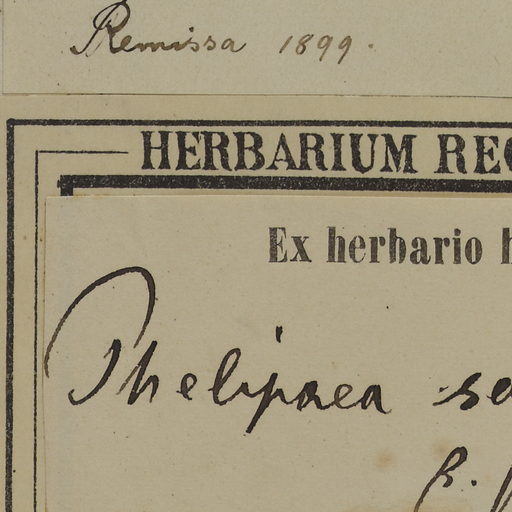 Remissa 1899.
HERBARIUM REG
Ex herbario h
Phelipaea sa
C.